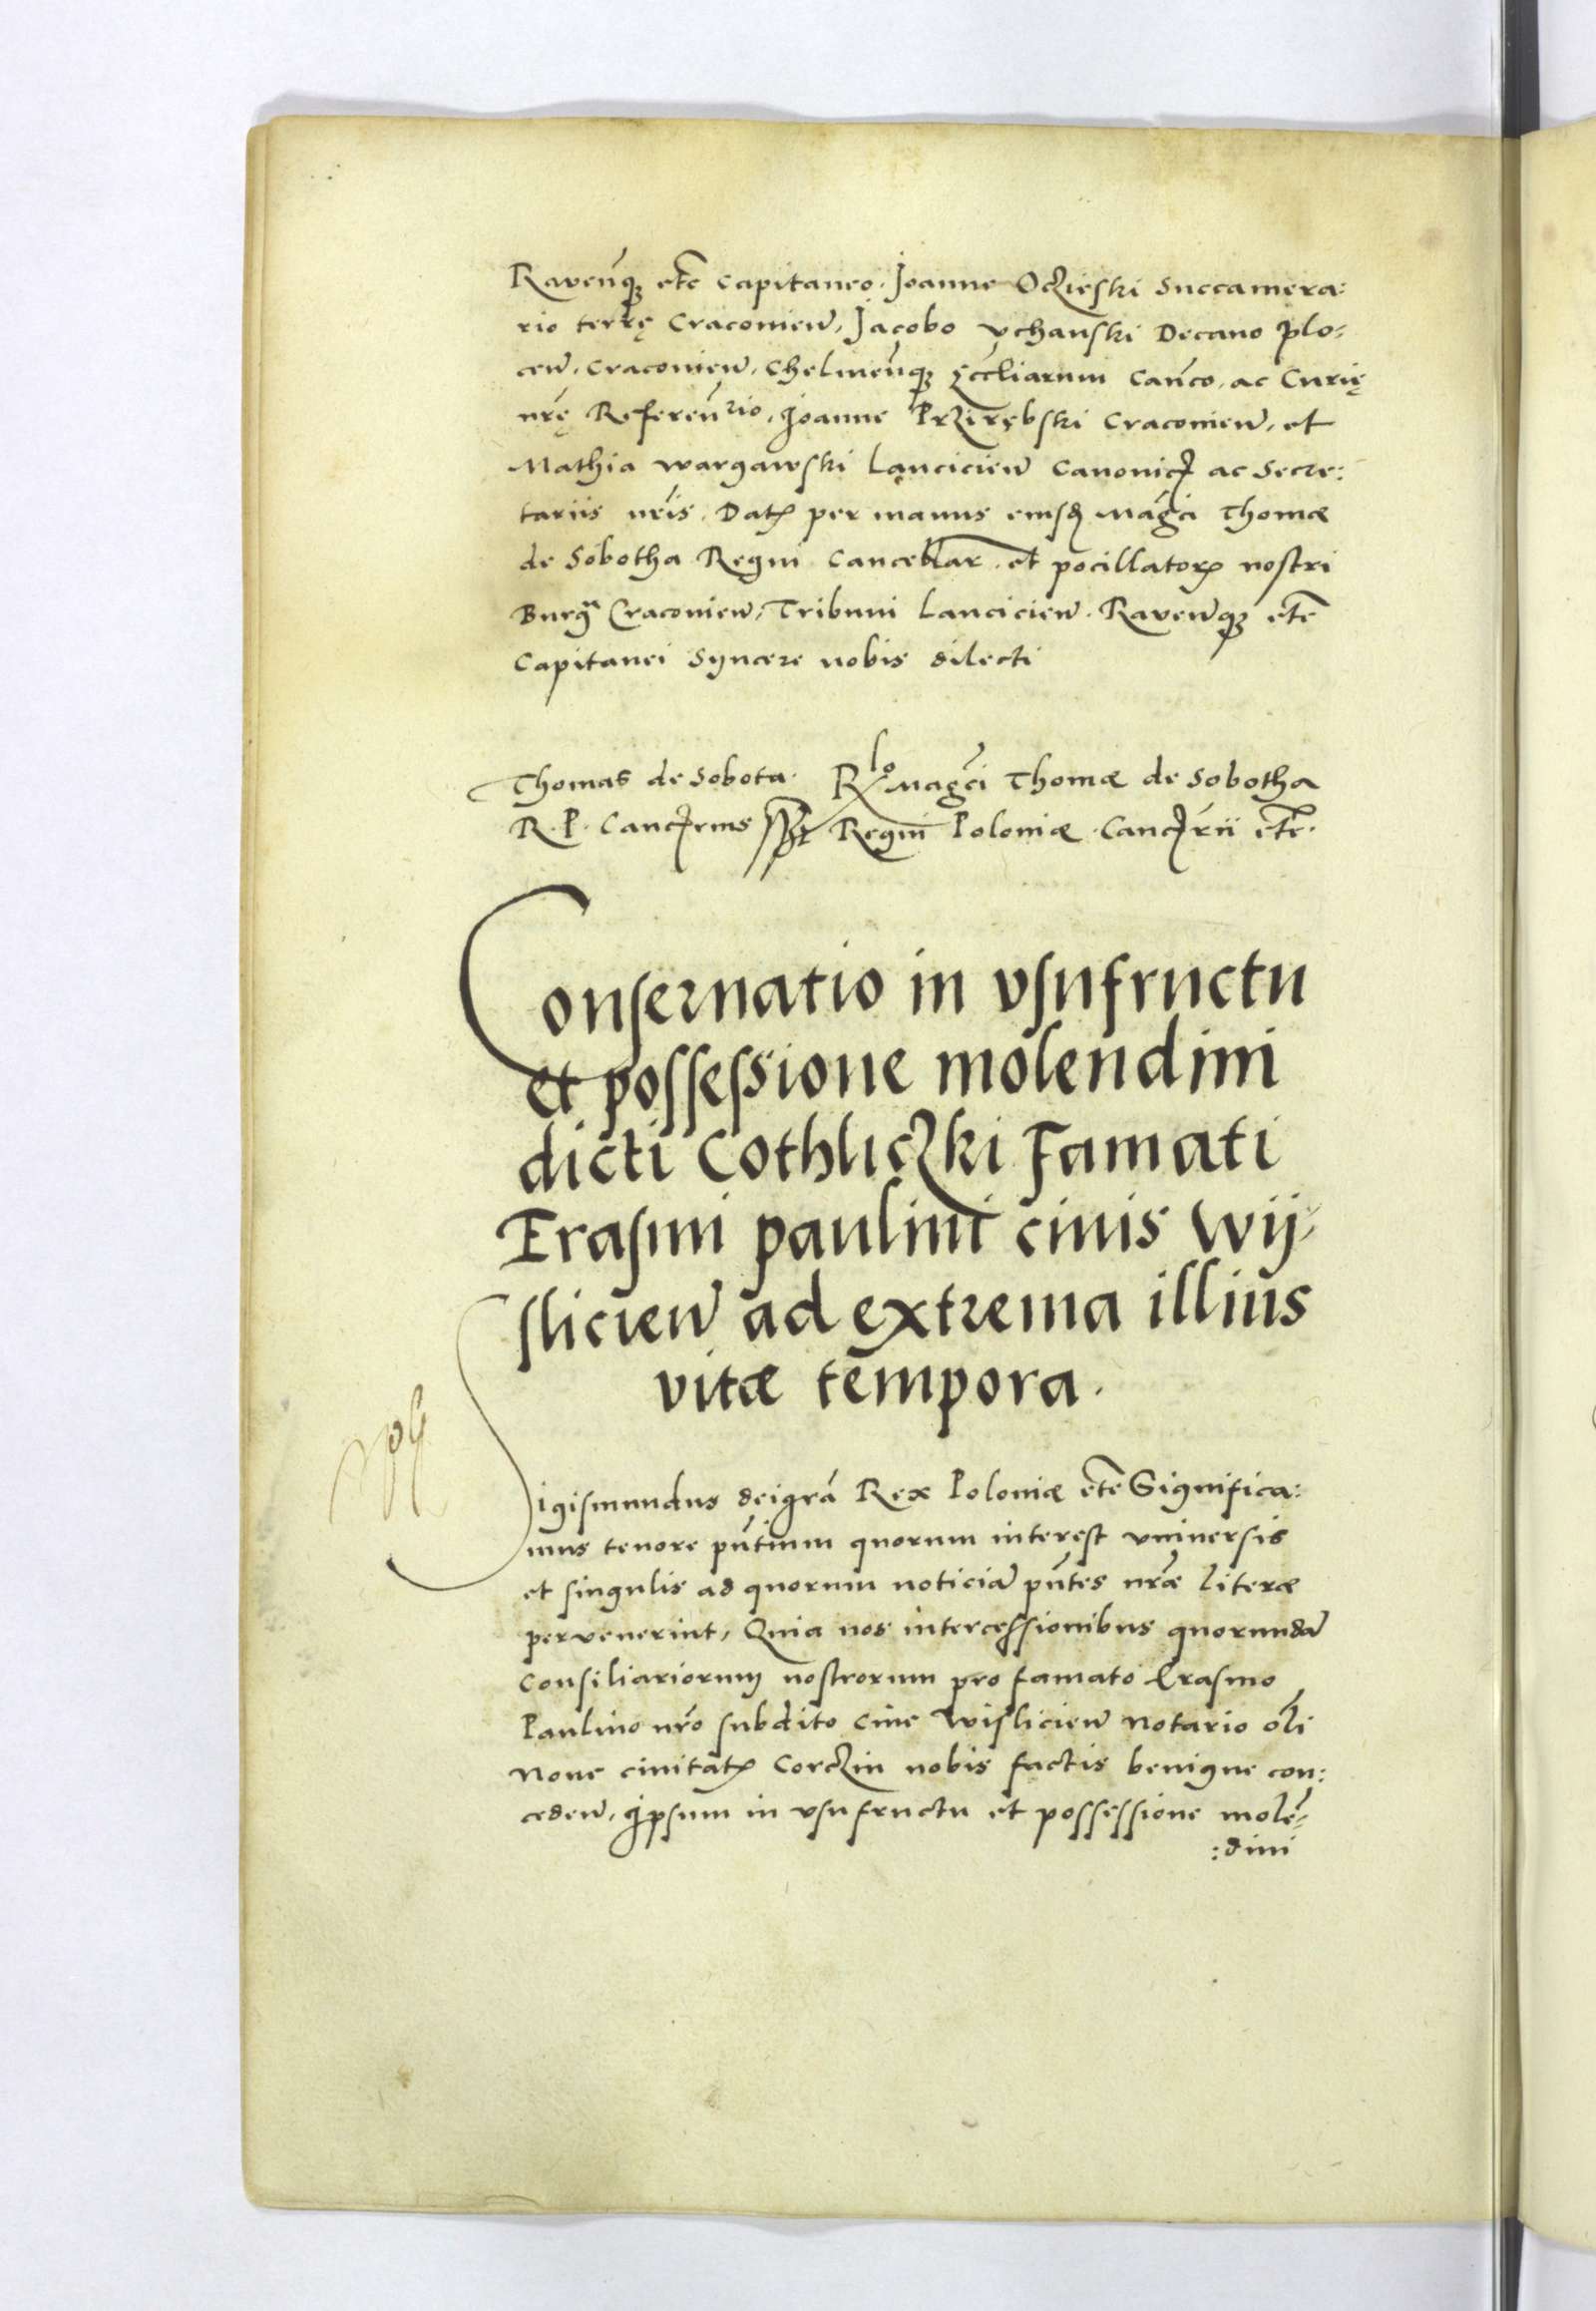 Raven̄q₃ etc̄ Capitaneo. Joanne Oczieski Succamera:
rio terrę Cracovien̄, Jacobo Vchanski Decano Plo:
cen̄. Cracovien̄. Chelmen̄q₃ Ecc̄liarum Can̄co. ac Curię
nr̄ę Referen̄rio. Joanne Przirębski Cracovien̄. et
Mathia Wargawski Lancicien̄ Canonicꝭ ac Secre:
tariis nr̄is. Datꝭ per manus eiusdꝫ Mag̃ci Thomæ
de Sobotha Regni Cancellar̄. et pocillatorꝭ nostri
Burgᵃ Cracovien̄, Tribuni Lancicien̄. Raven̄q₃ etc̄
Capitanei Syncere nobis dilecti
Thomas de Sobota. Rlo Mag̃ci Thomæ de Sobotha
R. P. Cancꝭrius sst Regni Poloniæ Cancꝭrii etc̄.
Conservatio in vsufructu
et possessione molendini
dicti Cothliczki Famati
Erasmi paulini civis Wij-
slicien̄ ad extrema illius
vitæ tempora.
Sigismundus dei gr̄a Rex Poloniæ etc̄ Significa:
mus tenore pn̄tium quorum interest vniversis
et singulis ad quorum noticiā pn̄tes nr̄æ literæ
pervenerint, Quia nos intercessionibus quorundā
Consiliariorum nostrorum pro famato Erasmo
Paulino nr̄o subdito cive Wislicien̄ Notario ol̄i
Nove civitatꝭ Corczin nobis factis benigne con:
ceden̄. ipsum in vsufructu et possessione molē-
:dini